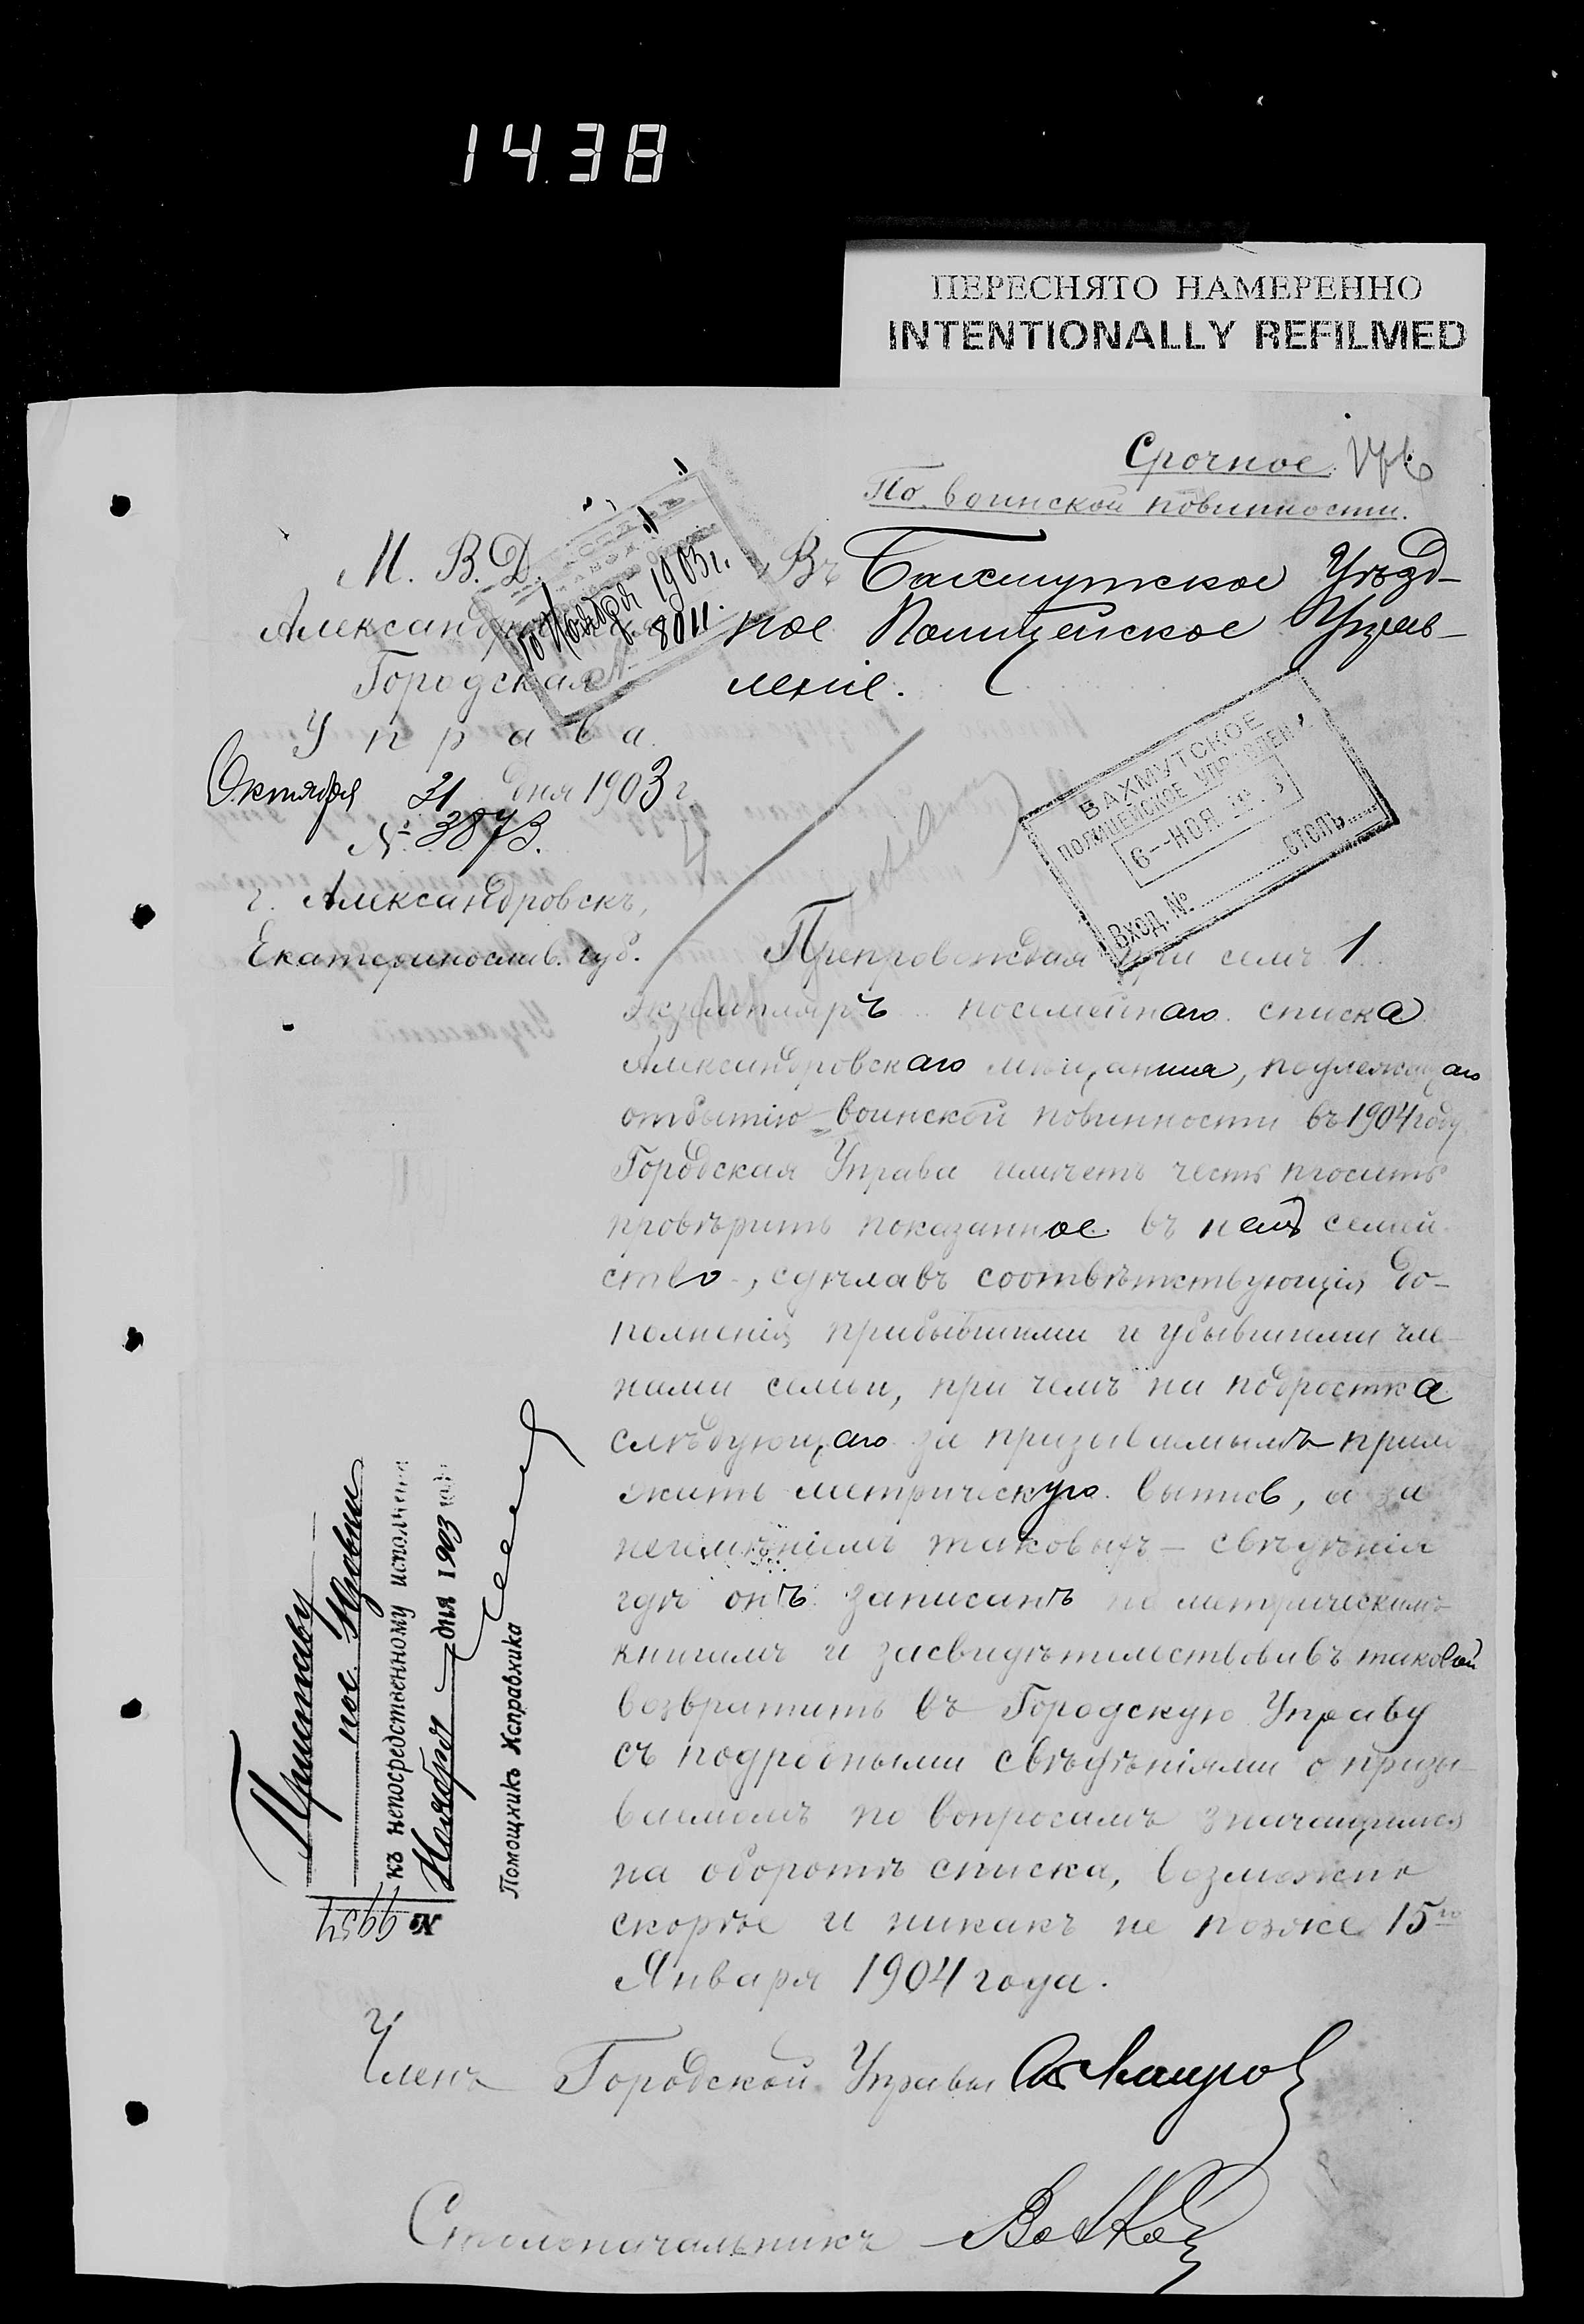 1438
ПЕРЕСНЯТО НАМЕРЕННО
INTENTIONALLY REFILMED
Срочное.
По воинской повинности.
М. В. Д.
Александровская
Городская
Управа.
Октября 21 дня 1903 г.
№ 3873.
г. Александровскъ,
Екатеринослав. губ.
10 Ноября 1903 г.
№ 8011.
Въ Бахмутское Уѣзд-
ное Полицейское Управ-
леніе.
БАХМУТСКОЕ
ПОЛИЦЕЙСКОЕ УПРАВЛЕНІЕ
6-НОЯ. 190.3
Вход. № СТОЛЪ
Препровождая при семъ 1
экземпляръ посемейнаго списка
Александровскаго мѣщанина, подлежащаго
отбытію воинской повинности въ 1904 году
Городская Управа имѣетъ честь просить
провѣрить показанное въ немъ семей-
ство, сдѣлавъ соотвѣтствующія до-
полненія прибывшими и убывшими чле-
нами семьи, при чемъ на подростка
слѣдующаго за призываемымъ прило
жить метрическую выпись, а за
неимѣніемъ таковыхъ — свѣдѣнія
гдѣ онъ записанъ по метрическимъ
книгамъ и засвидѣтельствовавъ таковой
возвратить въ Городскую Управу
съ подробными свѣдѣніями о призы-
ваемомъ по вопросамъ значащимся
на оборотѣ списка, возможно
скорѣе и никакъ не позже 15го
Января 1904 года.
Приставу
пос.
къ непосредственному исполненію
Ноября дня 1903 года
Помощникъ Исправника
№ 9954
Членъ Городской Управы
Столоначальникъ